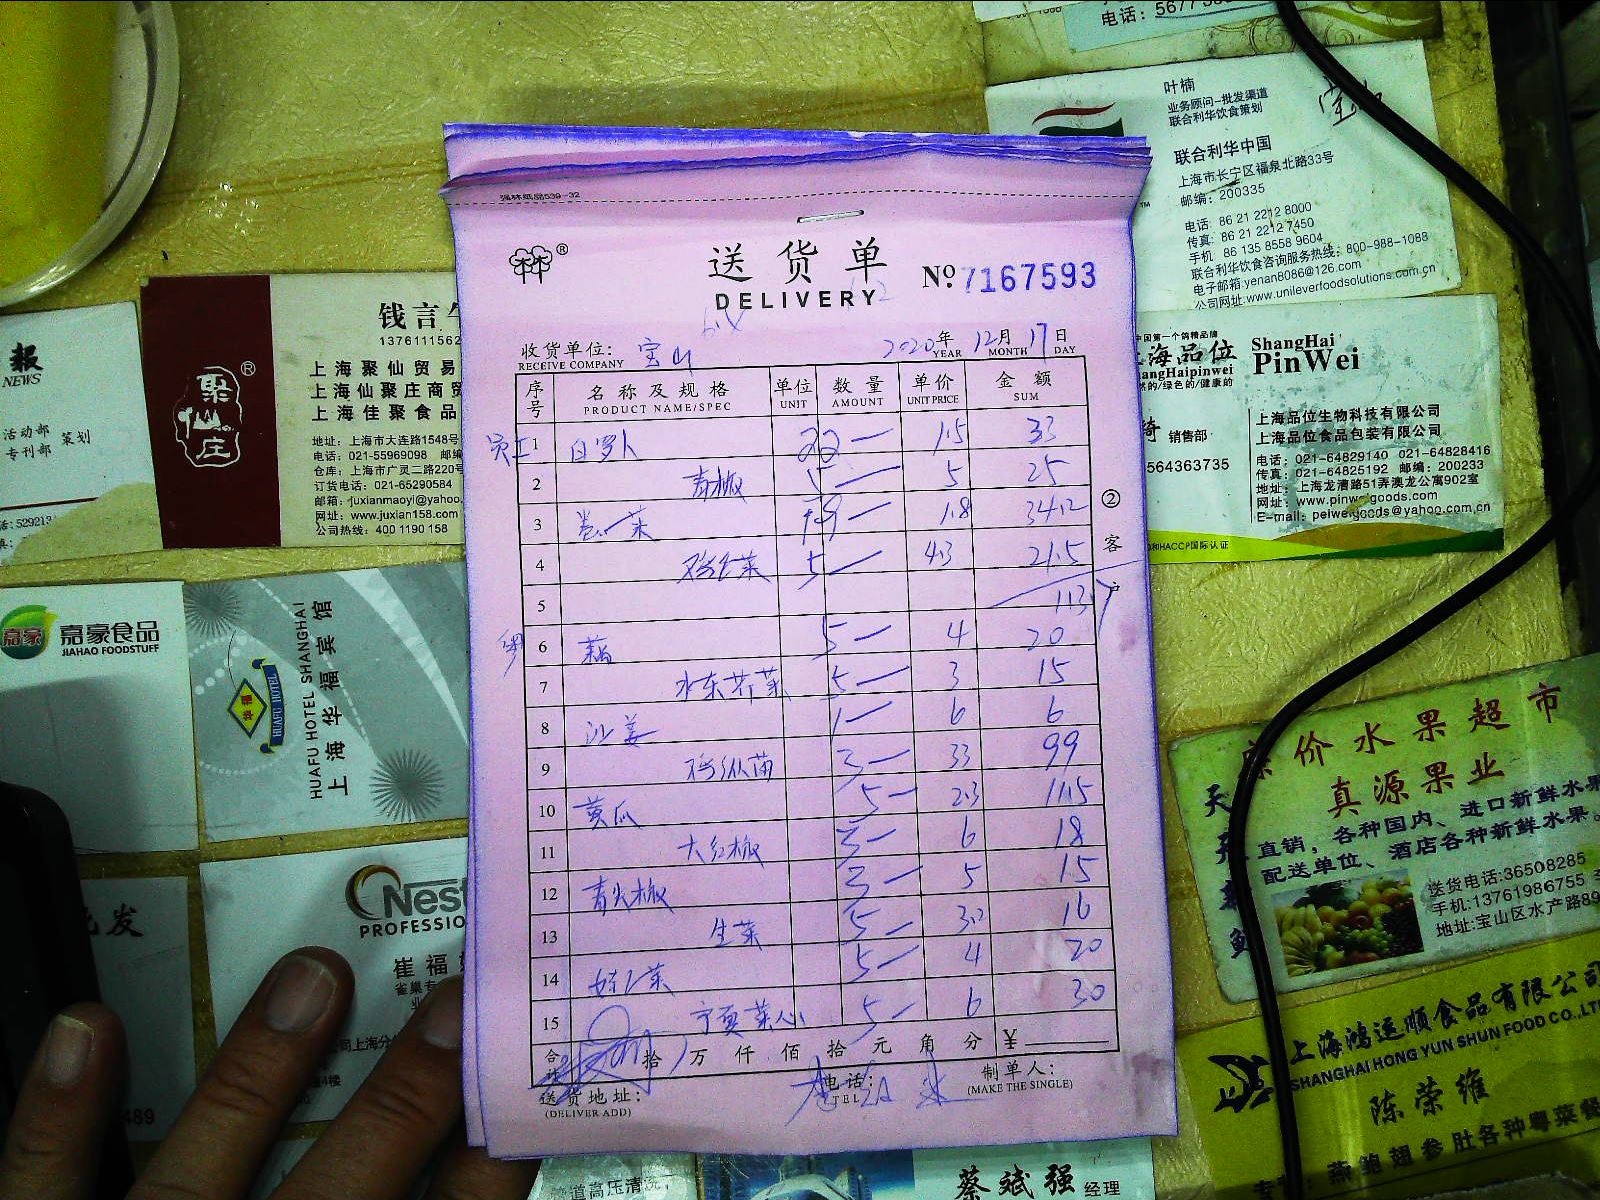 电话: 5677
叶楠
业务顾问-批发渠道
联合利华饮食策划
联合利华中国
上海市长宁区福泉北路33号
邮编: 200335
电话: 86 21 2212 8000
传真: 86 21 2212 7450
手机 86 135 8558 9604
联合利华饮食咨询服务热线: 800-988-1088
电子邮箱:yenan8086@126.com
公司网址:www.unileverfoodsolutions.com.cn
强林纸品539-32
林 ®
送货单
DELIVERY
№ 7167593
收货单位: 宝山
RECEIVE COMPANY
2020年 12月 17日
YEAR MONTH DAY
序号 名称及规格 单位 数量 单价 金额
PRODUCT NAME/SPEC UNIT AMOUNT UNIT PRICE SUM
员工 1 白罗卜 22— 1.5 33
2 青椒 5— 5 25
3 卷心菜 19— 1.8 34.2
4 鸡毛菜 5— 4.3 21.5
5 113
6 藕 5— 4 20
7 水东芥菜 5— 3 15
8 沙姜 1— 6 6
9 鸡枞菌 3— 33 99
10 黄瓜 5— 2.3 11.5
11 大红椒 3— 6 18
12 青尖椒 3— 5 15
13 生菜 5— 3.2 16
14 娃娃菜 5— 4 20
15 宁夏菜心 5— 6 30
合计 拾 万 仟 佰 拾 元 角 分 ¥
送货地址:
(DELIVER ADD)
电话:
TEL
制单人:
(MAKE THE SINGLE)
② 客户
报
NEWS
活动部
专刊部
策划
聚仙庄 ®
钱言
1376111562
上海聚仙贸易
上海仙聚庄商贸
上海佳聚食品
地址: 上海市大连路1548号
电话: 021-55969098 邮编
仓库: 上海市广灵二路220号
订货电话: 021-65290584
邮箱: juxianmaoyi@yahoo.
网址: www.juxian158.com
公司热线: 400 1190 158
中国第一个鸽精品牌
上海品位
ShangHaipinwei
ShangHai
PinWei
销售部
564363735
上海品位生物科技有限公司
上海品位食品包装有限公司
电话: 021-64829140 021-64828416
传真: 021-64825192 邮编: 200233
地址: 上海龙漕路51弄澳龙公寓902室
网址: www.pinweigoods.com
E-mail: peiweigoods@yahoo.com.cn
和HACCP国际认证
嘉豪
嘉豪食品
JIAHAO FOODSTUFF
华福
HUAFU HOTEL
HUAFU HOTEL SHANGHAI
上海华福宾馆
批发
Nest
PROFESSIO
崔福
雀巢专
489
价水果超市
真源果业
直销, 各种国内、进口新鲜水果
配送单位、酒店各种新鲜水果。
送货电话:36508285
手机:13761986755
地址:宝山区水产路89
上海鸿运顺食品有限公司
SHANGHAI HONG YUN SHUN FOOD CO.,LTD
陈荣维
燕鲍翅参肚各种粤菜餐
管道高压清洗
蔡斌强 经理